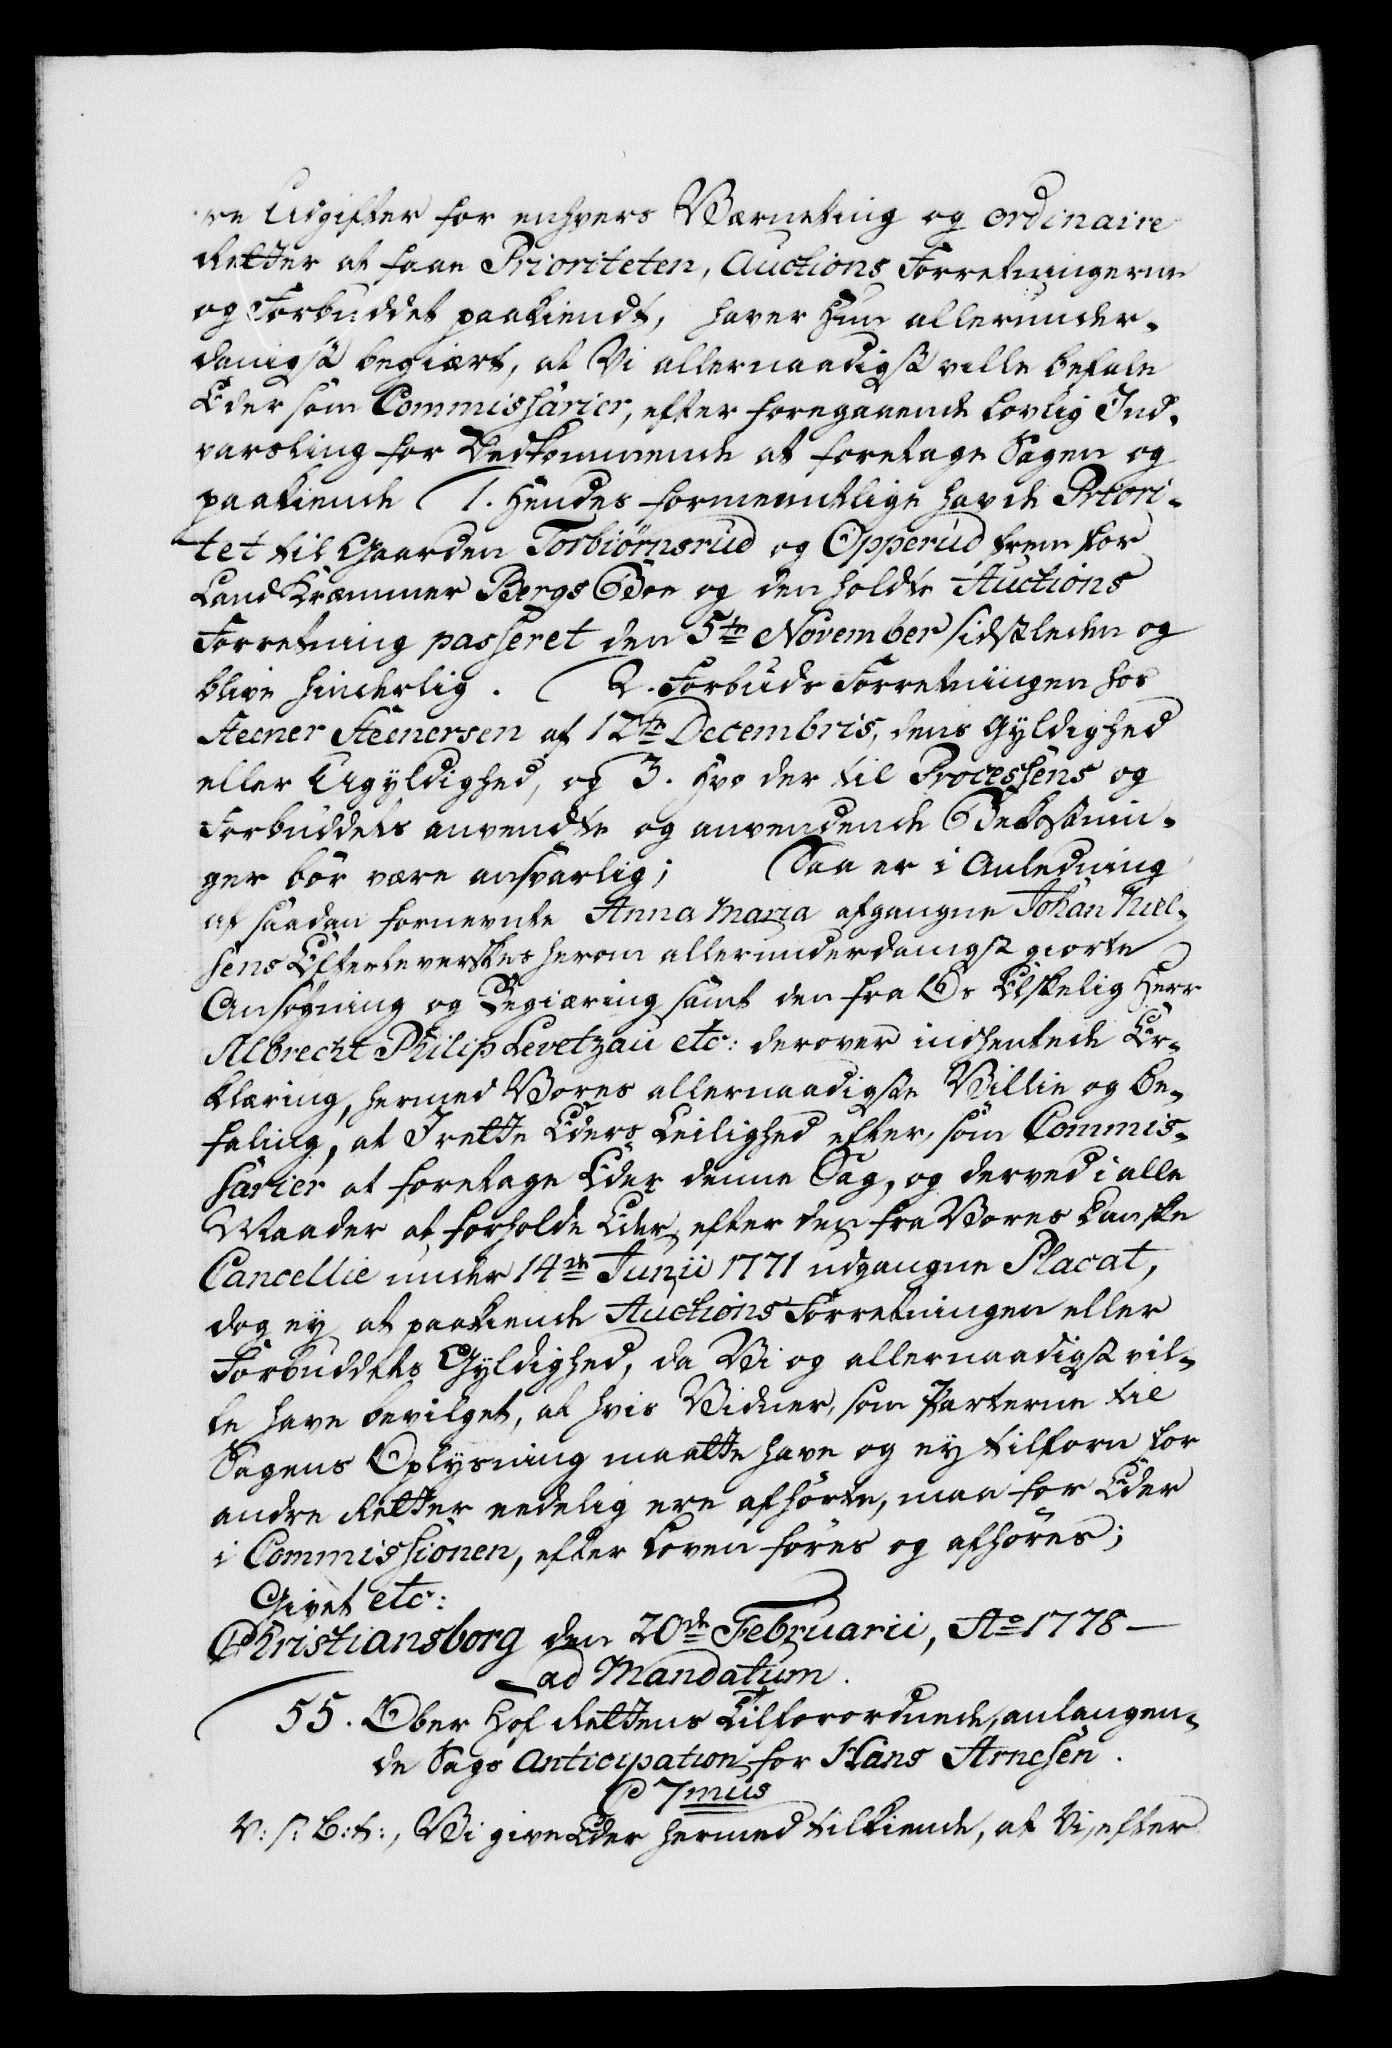 re Udgifter for enhvers Værneting og ordinaire
Retter at faae Prioriteten, Auctions Forretningerne
og Forbuddet paakiendt, haver Hun allerunder-
danigst begiært, at Vi allernaadigst ville befale
Eder som Commissarier, efter foregaaende lovlig Ind-
varsling for Vedkommende at foretage Sagen og
paakiende 1. Hendes formeentlige havde Priori-
tet til Gaarden Torbiørnsrud og Opperud frem for
Land Kræmmer Bergs Boe og den holdte Auctions
Forretning passeret den 5te November sidstleden og
blive hinderlig. 2. Forbuds Forretningen hos
Steener Steenersen af 12te Decembris, dens Gyldighed
eller Ugyldighed, og 3. Hvo der til Processens og
Forbuddets anvendte og anvendende Bekostnin-
ger bør være ansvarlig; Saa er i Anledning
af saadan fornevnte Anna Maria afgangne Johan Niel-
sens Efterleverskes herom allerunderdanigst giorte
Ansøgning og Begiæring samt den fra Os Elskelig Herr
Albrecht Philip Levetzau etc: derover indhentede Er-
klæring, hermed Vores allernaadigste Villie og Be-
faling, at I rette Eders Leilighed efter, som Commis-
sarier at foretage Eder denne Sag, og derved i alle
Maader at forholde Eder efter den fra Vores Danske
Cancellie under 14de Junii 1771 udgangne Placat,
dog ey at paakiende Auctions Forretningen eller
Forbuddets Gyldighed, da Vi og allernaadigst vil-
le have bevilget, at hvis Vidner, som Parterne til
Sagens Oplysning maatte have og ey tilforn for
andre Retter eedelig ere afhørte, maa for Eder
i Commissionen, efter Loven føres og afhøres;
Givet etc:
Christiansborg den 20de Februarii, Ao 1778 —
ad Mandatum.
55. Ober Hof Rettens Tilforordnede, anlangen-
de Sags Anticipation for Hans Arnesen.
C 7mus
V: s: B: t:, Vi give Eder hermed tilkiende, at Vi, efter